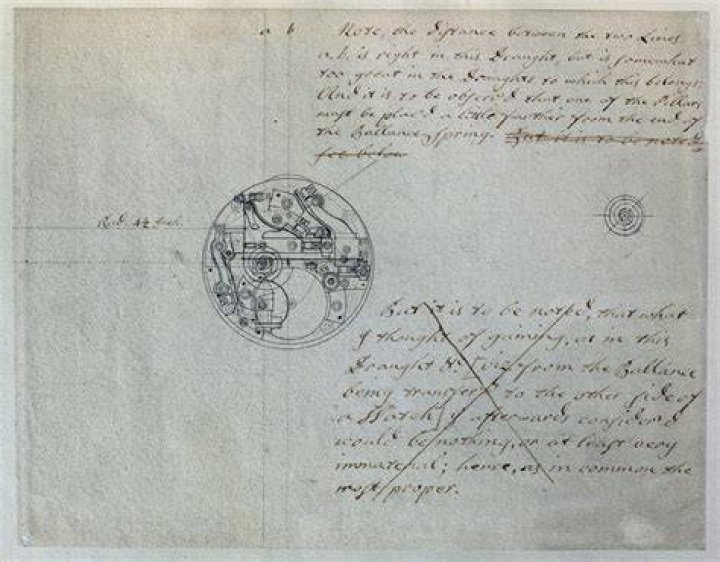 a b
Note, the distance between the two Lines
a.b, is right in this Draught, but is somewhat
too great in the Draughts to which this belongs
And it is to be observed that one of the Pillars
must be placed a little farther from the end of
the Ballance-spring. But it is to be noted
see below
But it is to be noted, that what
I thought of gaining, as in this
Draught &c. [viz from the Ballance
being transferr'd to the other side of
a Watch] I afterwards consider'd
would be nothing, or at least very
immaterial; hence, as in common the
most proper.